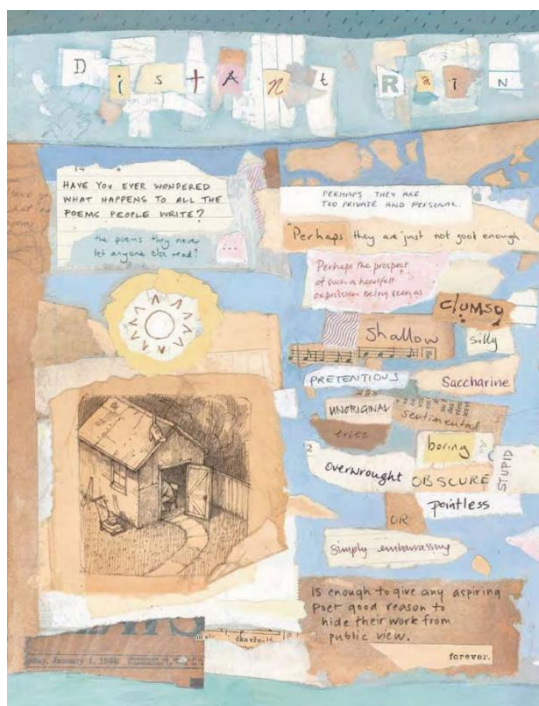 DistAnt RaiN
HAVE YOU EVER WONDERED
WHAT HAPPENS TO ALL THE
POEMS PEOPLE WRITE?
the poems they never
let anyone else read?
...
PERHAPS THEY ARE
TOO PRIVATE AND PERSONAL.
Perhaps they are just not good enough.
Perhaps the prospect
of such a heartfelt
expression being seen as
clumsy
shallow
silly
PRETENTIOUS
Saccharine
UNORIGINAL
sentimental
trite
boring
overwrought
OBSCURE
STUPID
pointless
OR
simply embarrassing
is enough to give any aspiring
poet good reason to
hide their work from
public view.
forever.
day, January 1,